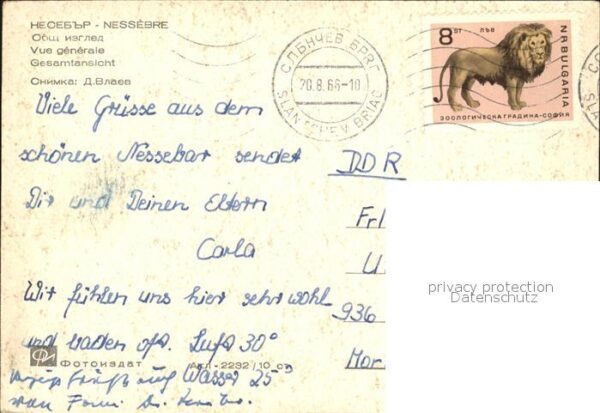 НЕСЕБЪР - NESSÈBRE
Общ изглед
Vue générale
Gesamtansicht
Снимка: Д. Влаев
СЛЪНЧЕВ БРЯГ
20.8.66-10
SLANTCHEV BRIAG
8 ст
ЛЪВ
N R BULGARIA
ЗООЛОГИЧЕСКА ГРАДИНА-СОФИЯ
Viele Grüsse aus dem
schönen Nessebar sendet
Dir und Deinen Eltern
Carla
Wir fühlen uns hier sehr wohl
und baden oft. Luft 30°
Wasser 25°
von Fam.
DDR
Frl
U
936
Mar
privacy protection
Datenschutz
Фотоиздат
Акл-2232/10 см